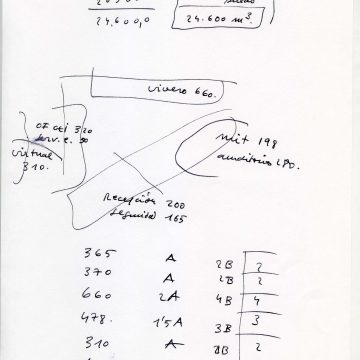 24.600,0
24.600 m³.
vivero 660.
310.
virtual
mit 198
auditorio 280.
Recepción 200
seguridad 165
365 A 2B 2
370 A 2B 2
660 2A 4B 4
478. 1'5A 3B 3
310 A 2B 2